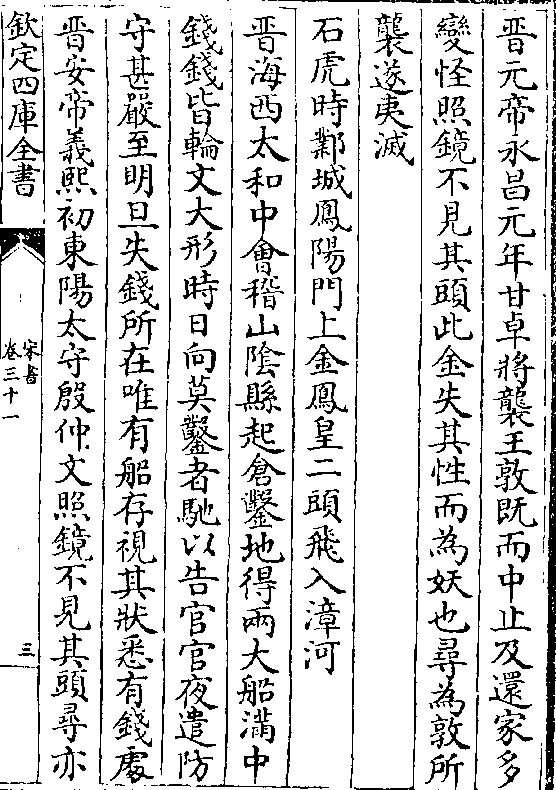 晉元帝永昌元年甘卓將襲王敦既而中止及還家多
變怪照鏡不見其頭此金失其性而為妖也尋為敦所
襲遂夷滅
石虎時鄴城鳳陽門上金鳳皇二頭飛入漳河
晉海西太和中會稽山陰縣起倉鑿地得兩大船滿中
錢錢皆輪文大形時日向莫鑿者馳以告官官夜遣防
守甚嚴至明旦失錢所在唯有船存視其狀悉有錢處
晉安帝義熙初東陽太守殷仲文照鏡不見其頭尋亦
欽定四庫全書
宋書
卷三十一
三